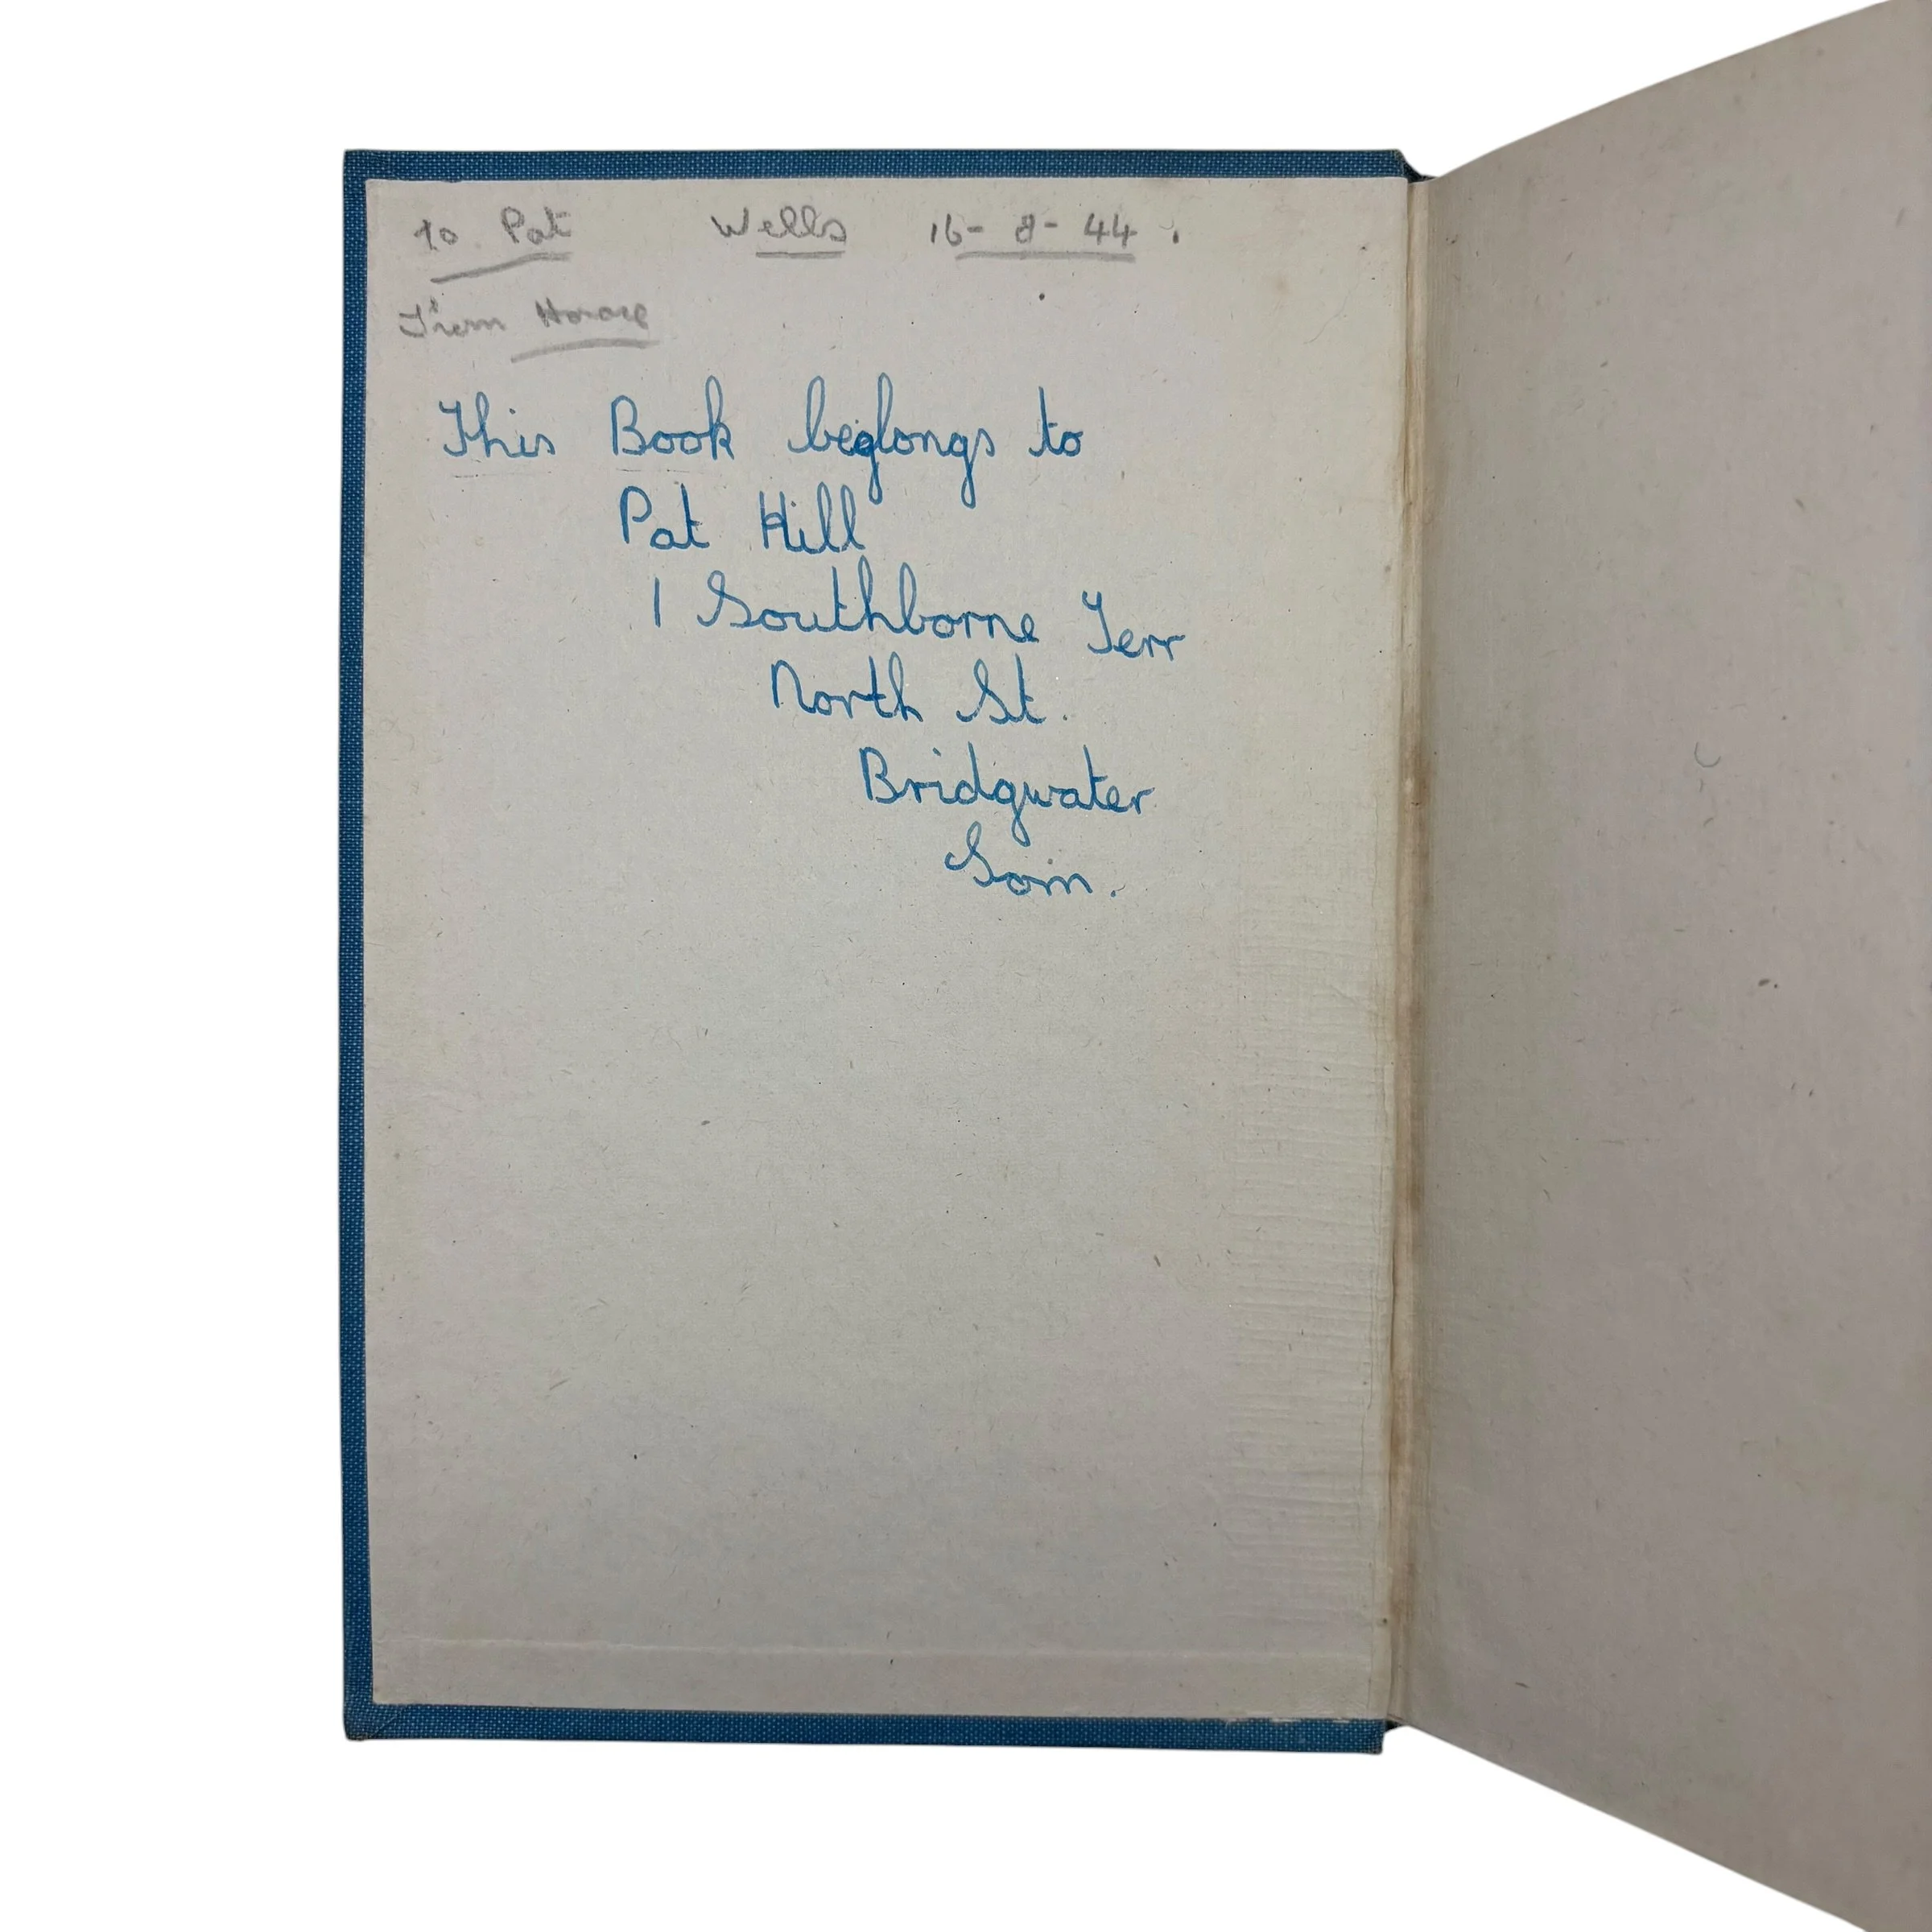 to Pat Wells 16-8-44.
From Horace
This Book beglongs to
Pat Hill
1 Southborne Terr
North St.
Bridgwater
Som.